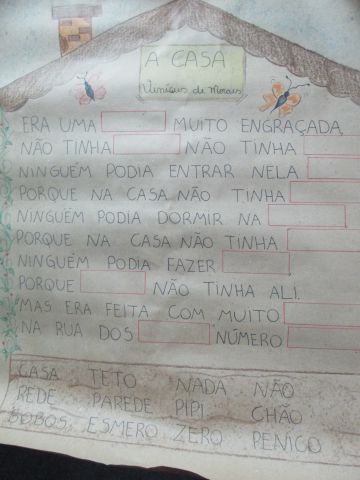 A CASA
Vinícius de Morais
ERA UMA MUITO ENGRAÇADA
NÃO TINHA NÃO TINHA
NINGUÉM PODIA ENTRAR NELA
PORQUE NA CASA NÃO TINHA
NINGUÉM PODIA DORMIR NA
PORQUE NA CASA NÃO TINHA
NINGUÉM PODIA FAZER
PORQUE NÃO TINHA ALI.
MAS ERA FEITA COM MUITO
NA RUA DOS NÚMERO
CASA TETO NADA NÃO
REDE PAREDE PIPI CHÃO
BOBOS ESMERO ZERO PENICO